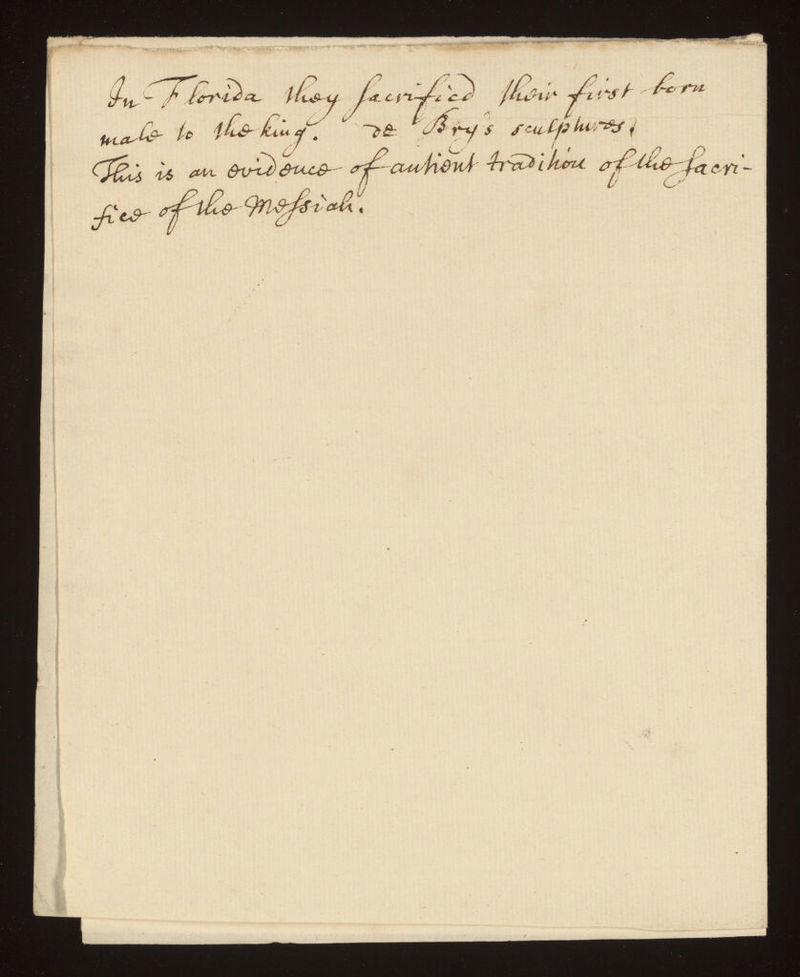 In Florida they sacrificd their first born
male to the king. de Bry's sculptures.
This is an evidence of antient tradition of the sacri-
fice of the Messiah.